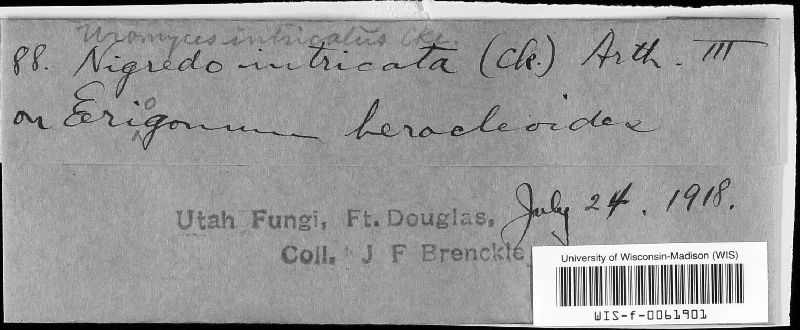 Uromyces intricatus Cke.
88. Nigredo intricata (Ck.) Arth. III
on Eriogonum heracleoides
July 24. 1918.
Utah Fungi, Ft. Douglas,
Coll. J F Brenckle
University of Wisconsin-Madison (WIS)
WIS-f-0061901